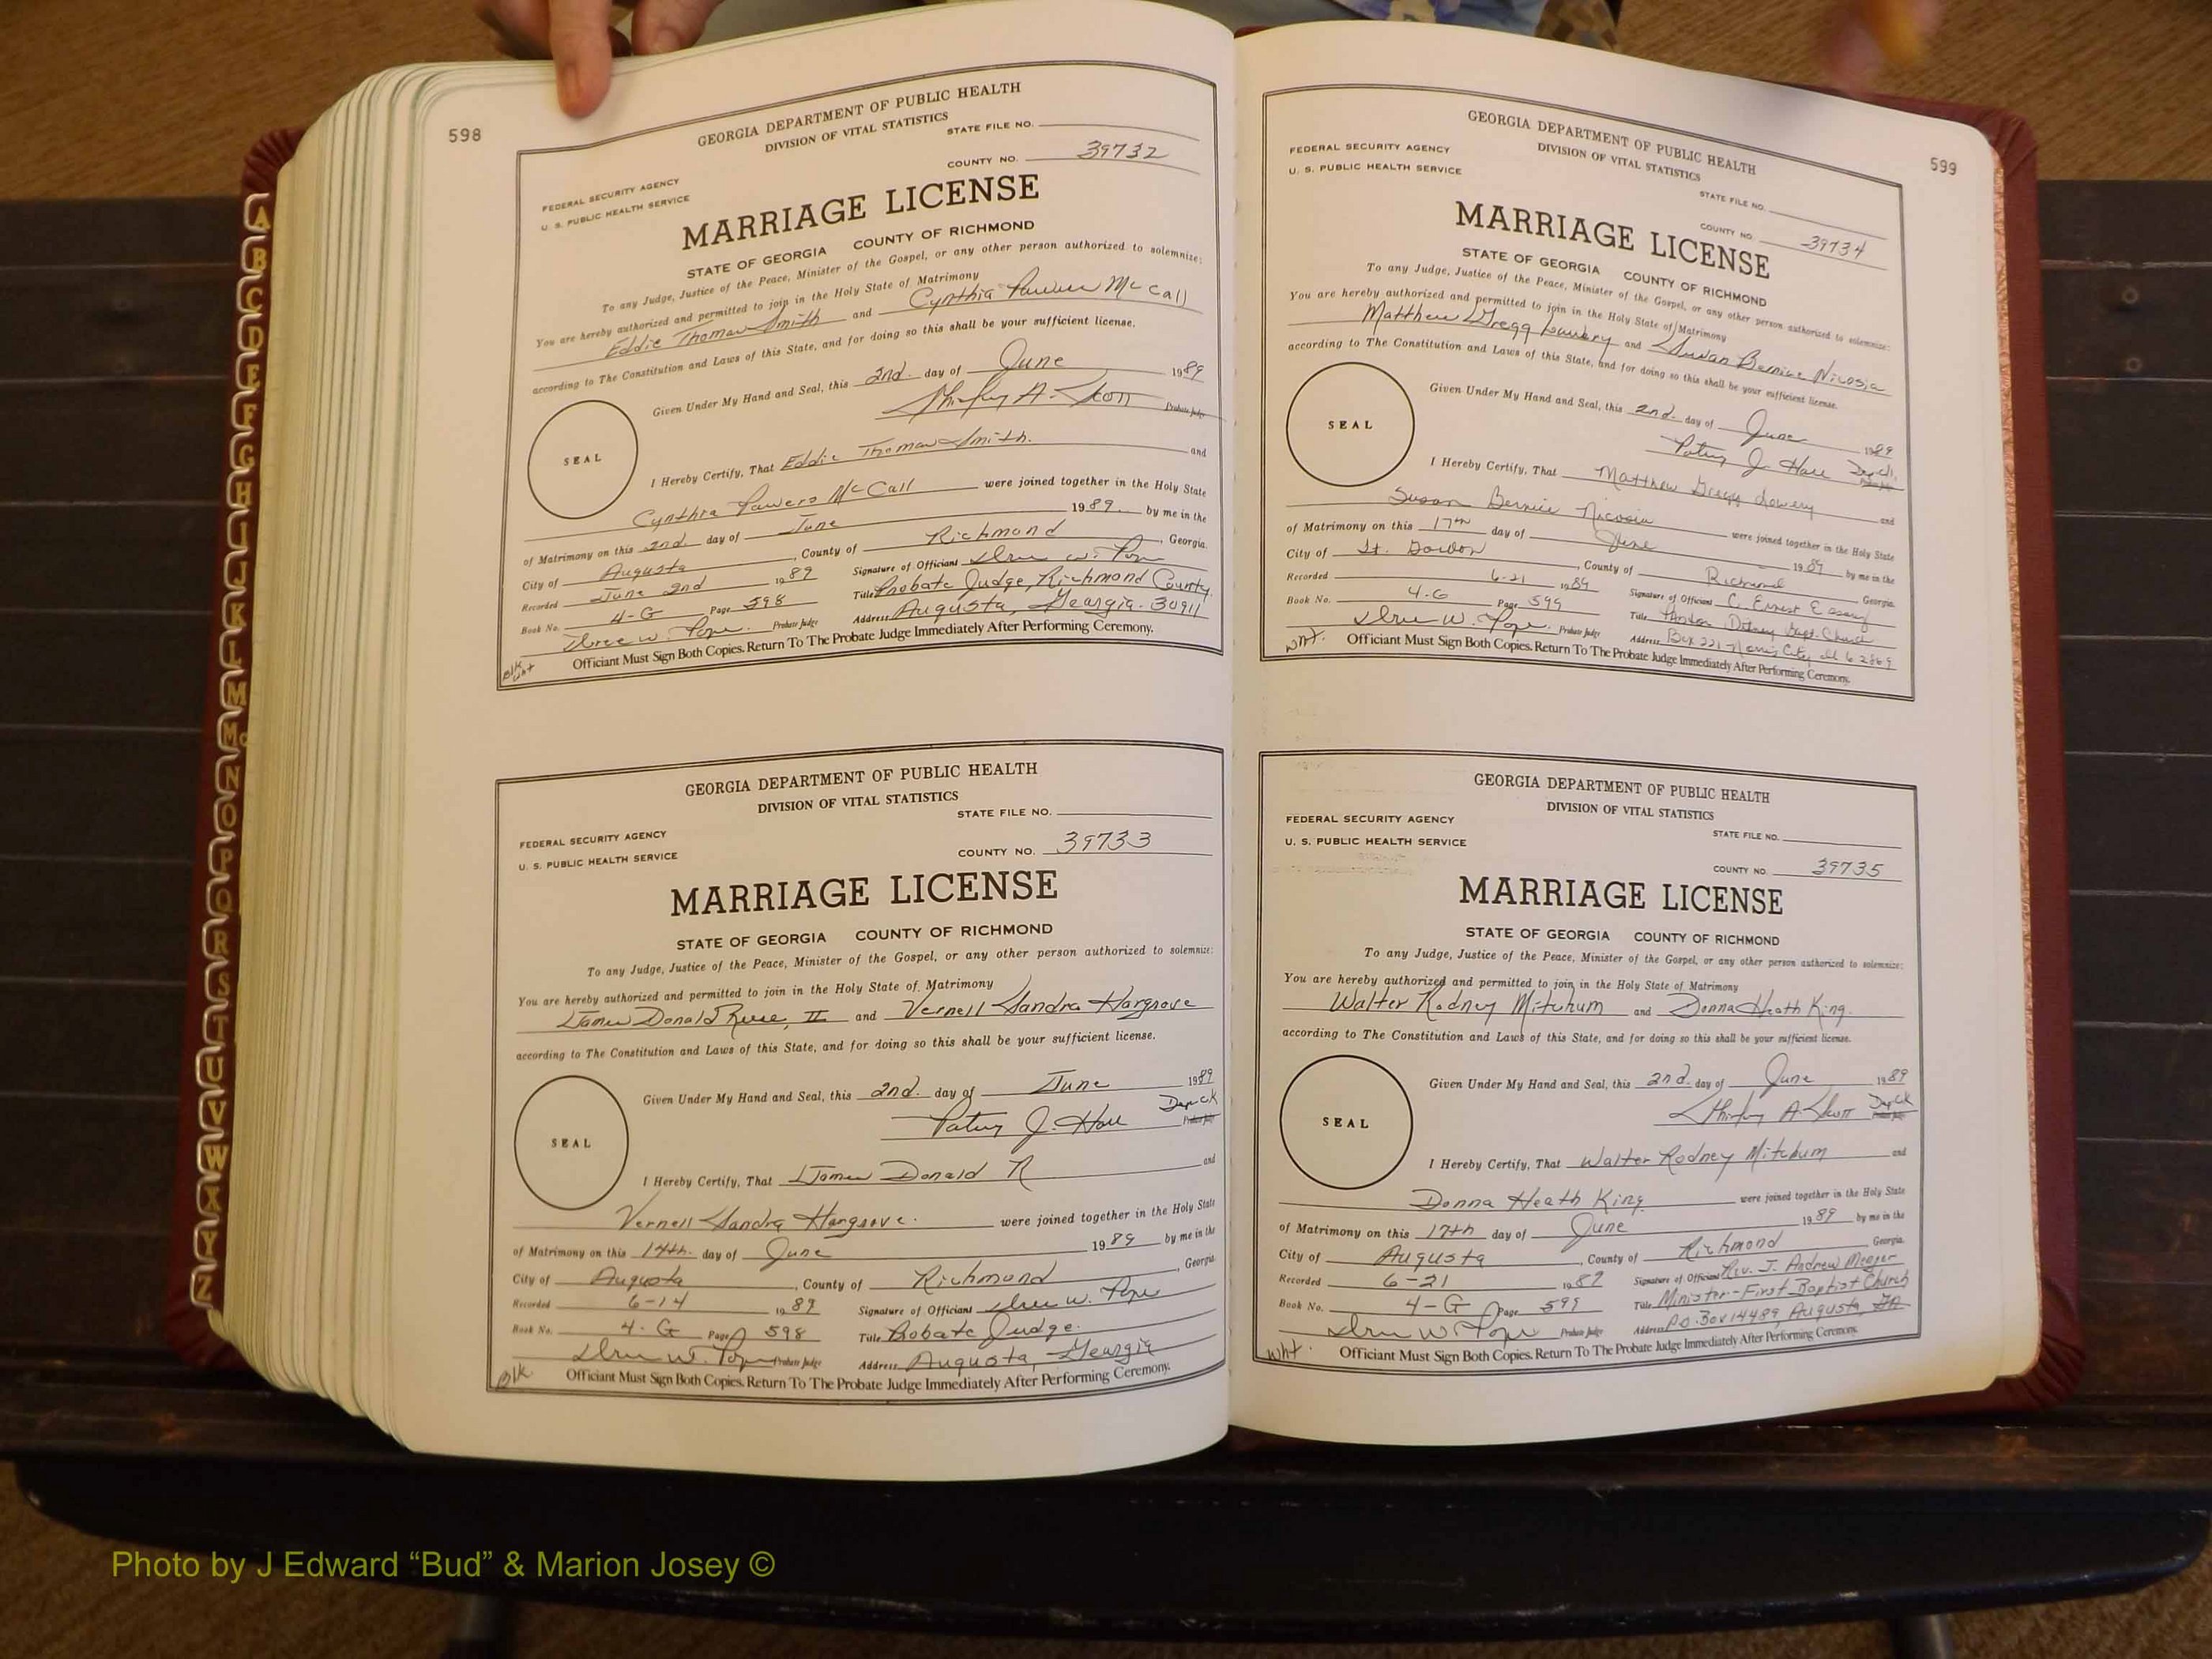 598
GEORGIA DEPARTMENT OF PUBLIC HEALTH
DIVISION OF VITAL STATISTICS
STATE FILE NO.
COUNTY NO. 39732
FEDERAL SECURITY AGENCY
U. S. PUBLIC HEALTH SERVICE
MARRIAGE LICENSE
STATE OF GEORGIA COUNTY OF RICHMOND
To any Judge, Justice of the Peace, Minister of the Gospel, or any other person authorized to solemnize:
You are hereby authorized and permitted to join in the Holy State of Matrimony
Eddie Thomas Smith and Cynthia Powers McCall
according to The Constitution and Laws of this State, and for doing so this shall be your sufficient license.
Given Under My Hand and Seal, this 2nd. day of June 1989
Shirley A. Scott Probate Judge
SEAL
I Hereby Certify, That Eddie Thomas Smith. and
Cynthia Powers McCall were joined together in the Holy State
of Matrimony on this 2nd. day of June 1989 by me in the
City of Augusta, County of Richmond, Georgia.
Recorded June 2nd 1989 Signature of Officiant W. Pope
Book No. 4-G Page 598 Title Probate Judge, Richmond County
W. Pope. Probate Judge Address Augusta, Georgia. 30911
Blk wht Officiant Must Sign Both Copies. Return To The Probate Judge Immediately After Performing Ceremony.
GEORGIA DEPARTMENT OF PUBLIC HEALTH
DIVISION OF VITAL STATISTICS
STATE FILE NO.
FEDERAL SECURITY AGENCY
COUNTY NO. 39733
U. S. PUBLIC HEALTH SERVICE
MARRIAGE LICENSE
STATE OF GEORGIA COUNTY OF RICHMOND
To any Judge, Justice of the Peace, Minister of the Gospel, or any other person authorized to solemnize:
You are hereby authorized and permitted to join in the Holy State of Matrimony
James Donald Reese, II and Vernell Sandra Hargrove
according to The Constitution and Laws of this State, and for doing so this shall be your sufficient license.
Given Under My Hand and Seal, this 2nd. day of June 1989
Patsy J. Hall Dep Ck
Probate Judge
SEAL
I Hereby Certify, That James Donald R and
Vernell Sandra Hargrove. were joined together in the Holy State
of Matrimony on this 14th. day of June 1989 by me in the
City of Augusta, County of Richmond, Georgia.
Recorded 6-14 1989 Signature of Officiant W. Pope
Book No. 4-G Page 598 Title Probate Judge.
W. Pope Probate Judge Address Augusta, Georgia
Blk Officiant Must Sign Both Copies. Return To The Probate Judge Immediately After Performing Ceremony.
599
GEORGIA DEPARTMENT OF PUBLIC HEALTH
DIVISION OF VITAL STATISTICS
FEDERAL SECURITY AGENCY
U. S. PUBLIC HEALTH SERVICE
STATE FILE NO.
COUNTY NO. 39734
MARRIAGE LICENSE
STATE OF GEORGIA COUNTY OF RICHMOND
To any Judge, Justice of the Peace, Minister of the Gospel, or any other person authorized to solemnize:
You are hereby authorized and permitted to join in the Holy State of Matrimony
Matthew Gregg Lowery and Susan Bernice Nicosia
according to The Constitution and Laws of this State, and for doing so this shall be your sufficient license.
Given Under My Hand and Seal, this 2nd. day of June 1989
Patsy J. Hall Dep Ck.
Probate Judge
SEAL
I Hereby Certify, That Matthew Gregg Lowery and
Susan Bernice Nicosia were joined together in the Holy State
of Matrimony on this 17th day of June 1989 by me in the
City of Ft. Gordon, County of Richmond Georgia.
Recorded 6-21 1989 Signature of Officiant C. Ernest
Book No. 4-G Page 599 Title Bapt. Church
W. Pope. Probate Judge Address Box 221 Norris City, Ill 62869
wht. Officiant Must Sign Both Copies. Return To The Probate Judge Immediately After Performing Ceremony.
GEORGIA DEPARTMENT OF PUBLIC HEALTH
DIVISION OF VITAL STATISTICS
FEDERAL SECURITY AGENCY
STATE FILE NO.
U. S. PUBLIC HEALTH SERVICE
COUNTY NO. 39735
MARRIAGE LICENSE
STATE OF GEORGIA COUNTY OF RICHMOND
To any Judge, Justice of the Peace, Minister of the Gospel, or any other person authorized to solemnize:
You are hereby authorized and permitted to join in the Holy State of Matrimony
Walter Rodney Mitchum and Donna Heath King.
according to The Constitution and Laws of this State, and for doing so this shall be your sufficient license.
Given Under My Hand and Seal, this 2nd. day of June 1989
Shirley A. Scott Dep Ck
Probate Judge
SEAL
I Hereby Certify, That Walter Rodney Mitchum and
Donna Heath King were joined together in the Holy State
of Matrimony on this 17th day of June 1989 by me in the
City of Augusta, County of Richmond Georgia.
Recorded 6-21 1989 Signature of Officiant Rev. J. Andrew
Book No. 4-G Page 599 Title Minister-First Baptist Church
W. Pope Probate Judge Address P.O. Box 14489, Augusta, GA
wht. Officiant Must Sign Both Copies. Return To The Probate Judge Immediately After Performing Ceremony.
A
B
C
D
E
F
G
H
I
J
K
L
M
Mc
N
O
P
Q
R
S
T
U
V
W
X
Y
Z
Photo by J Edward “Bud” & Marion Josey ©